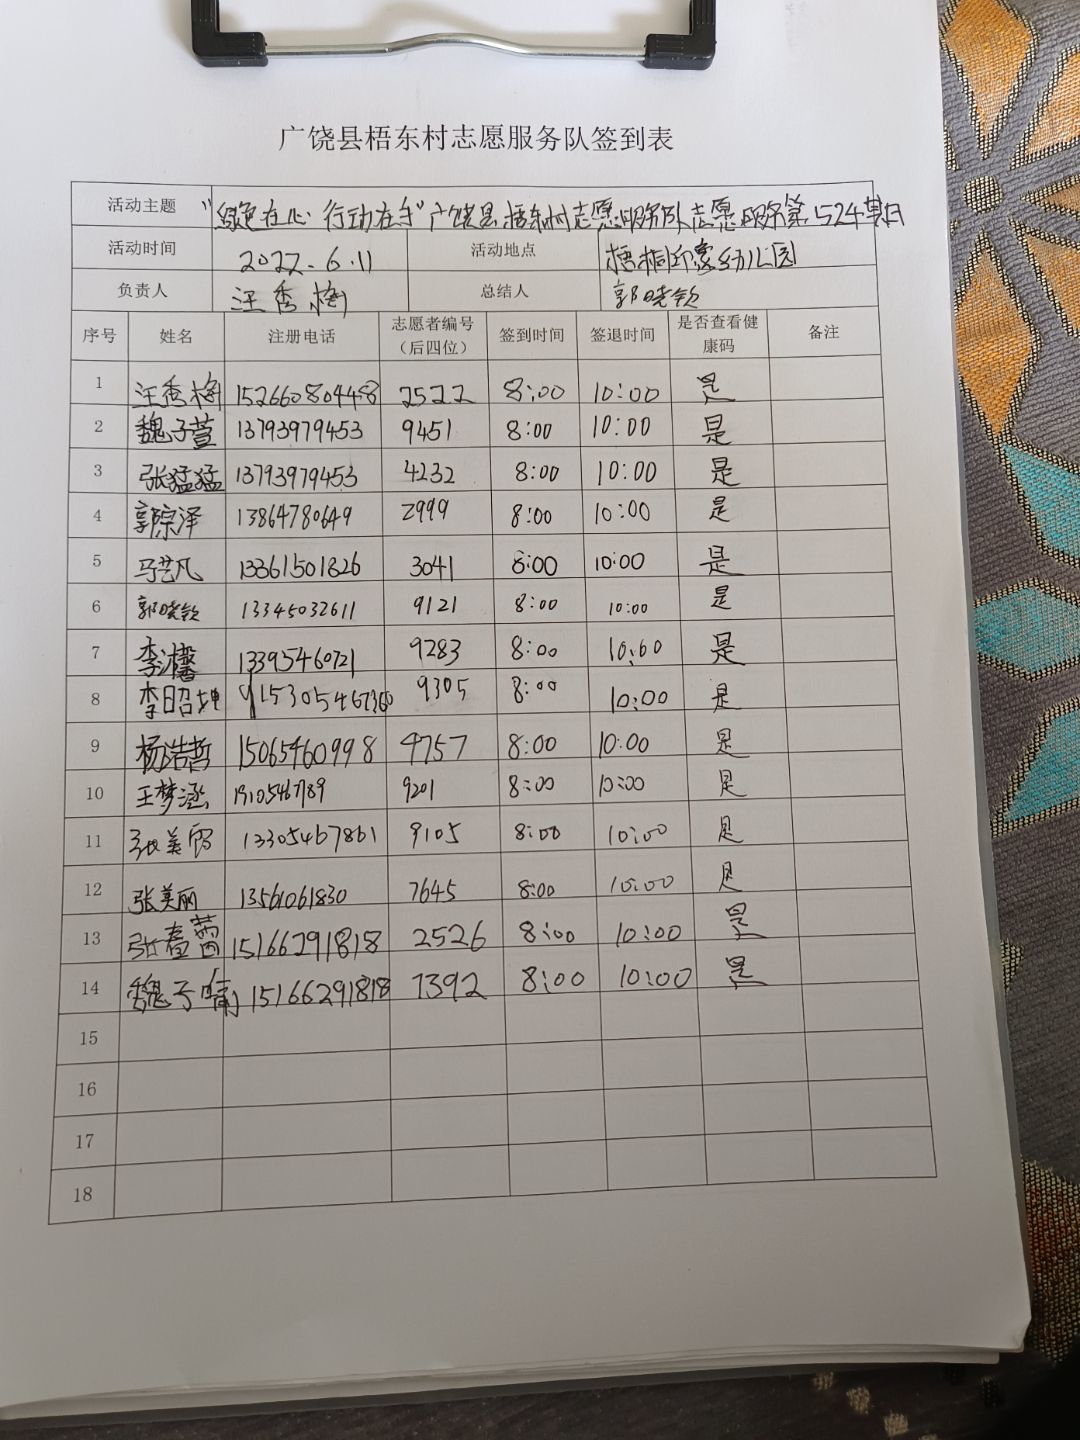 广饶县梧东村志愿服务队签到表
活动主题 "绿色在心 行动在手"广饶县梧东村志愿服务队志愿服务第524期
活动时间 2022.6.11 活动地点 梧桐印象幼儿园
负责人 汪秀梅 总结人 郭晓钦
序号 姓名 注册电话 志愿者编号（后四位） 签到时间 签退时间 是否查看健康码 备注
1 汪秀梅 15266080448 2522 8:00 10:00 是
2 魏子萱 13793979453 9451 8:00 10:00 是
3 张猛猛 13793979453 4232 8:00 10:00 是
4 郭宗泽 13864780649 2999 8:00 10:00 是
5 马艺凡 13361501826 3041 8:00 10:00 是
6 郭晓钦 13345032611 9121 8:00 10:00 是
7 李沐馨 13395460721 9283 8:00 10:00 是
8 李昭坤 15305467360 9305 8:00 10:00 是
9 杨浩哲 15065460998 9757 8:00 10:00 是
10 王梦涵 9201 8:00 10:00 是
11 张美 13305467861 9105 8:00 10:00 是
12 张美丽 13561061830 7645 8:00 10:00 是
13 张春蕾 15166291818 2526 8:00 10:00 是
14 魏子晴 15166291818 7392 8:00 10:00 是
15
16
17
18